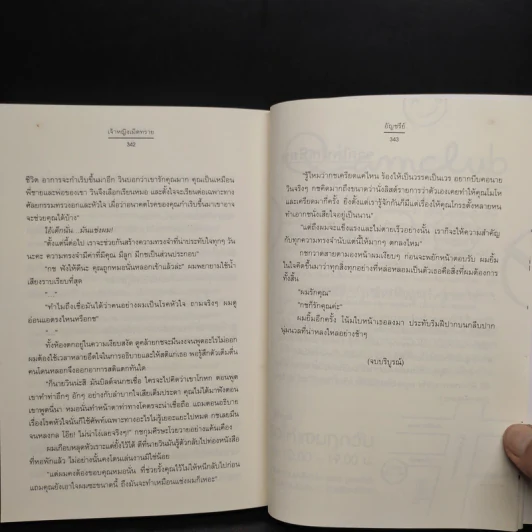 เจ้าหญิงเม็ดทราย
342
ชีวิต อาการจะกำเริบขึ้นมาอีก วินบอกว่าเขารักคุณมาก คุณเป็นเหมือน
พี่ชายและพ่อของเขา วินจึงเลือกเรียนหมอ และตั้งใจจะเรียนต่อเฉพาะทาง
ศัลยกรรมทรวงอกและหัวใจ เผื่อว่าอนาคตโรคของคุณกำเริบขึ้นมาเขาอาจ
จะช่วยคุณได้บ้าง"
ไอ้เด็กผีนั่น...มันแช่งผม!
"ตั้งแต่นี้ต่อไป เราจะช่วยกันสร้างความทรงจำที่น่าประทับใจทุกๆ วัน
นะคะ ความทรงจำที่มีคุณ มีลูก มีกชเป็นส่วนประกอบ"
"กช ฟังให้ดีนะ คุณถูกหมอนั่นหลอกเข้าแล้วล่ะ" ผมพยายามใช้น้ำ
เสียงราบเรียบที่สุด
"..."
"ทำไมถึงเชื่อมันได้ว่าคนอย่างผมเป็นโรคหัวใจ ถามจริงๆ ผมดู
อ่อนแอตรงไหนหรือกช"
"..."
ทั้งห้องตกอยู่ในความเงียบสงัด ดูคล้ายกชจะมึนงงจนพูดอะไรไม่ออก
ผมต้องใช้เวลาหลายอึดใจในการอธิบายและให้สติแก่เธอ พอรู้สึกตัวเต็มตื่น
คนโดนหลอกจึงออกอาการสติแตกทันใด
"ก็นายวินน่ะสิ มันบีลด์จนกชเชื่อ ใครจะไปคิดว่าเขาโกหก ตอนพูด
เขาทำท่าอึกๆ อักๆ อย่างกับลำบากใจเสียเต็มประดา คุณไม่ได้มาฟังตอน
เขาพูดนี่นา หมอนั่นทำหน้าตาท่าทางโคตรจะน่าเชื่อถือ แถมตอนอธิบาย
เรื่องโรคหัวใจนั่นก็ใช้ศัพท์เฉพาะทางอะไรไม่รู้เยอะแยะไปหมด กชเลยมึน
จนหลงกล โอ๊ย! ไม่น่าโง่เลยจริงๆ!" กชกุมศีรษะโวยวายอย่างแค้นเคือง
ผมเกือบหลุดหัวเราะแต่ยั้งไว้ได้ ดีที่นายวินมันรู้ตัวกลับไปห้องหนังสือ
ที่หอพักแล้ว ไม่อย่างนั้นคงโดนเล่นงานมิใช่น้อย
"แต่ผมคงต้องขอบคุณหมอนั่น ที่ช่วยรั้งคุณไว้ไม่ให้หนีกลับไปก่อน
แถมคุณยังเอาใจผมซะขนาดนี้ ถึงมันจะทำเหมือนแช่งผมก็เหอะ"
อัญชรีย์
343
"รู้ไหมว่ากชเครียดแค่ไหน ร้องไห้เป็นวรรคเป็นเวร อยากบีบคอนาย
วินจริงๆ กชคิดมากถึงขนาดว่านั่งลิสต์รายการว่าตัวเองเคยทำให้คุณโมโห
และเครียดมากี่ครั้ง ยิ่งตั้งแต่เรารู้จักกันก็มีแต่เรื่องให้คุณโกรธตั้งหลายหน
ทำเอากชนั่งเสียใจอยู่เป็นนาน"
"แต่ถึงผมจะแข็งแรงและไม่ตายเร็วอย่างนั้น เราก็จะให้ความสำคัญ
กับทุกความทรงจำนับแต่นี้ให้มากๆ ตกลงไหม"
กชกวาดสายตามองหน้าผมเงียบๆ ก่อนจะพยักหน้าตอบรับ ผมยิ้ม
ในใจคิดขึ้นมาว่าทุกสิ่งทุกอย่างที่หล่อหลอมเป็นตัวเธอคือสิ่งที่ผมต้องการ
ทั้งสิ้น
"ผมรักคุณ"
"กชก็รักคุณค่ะ"
ผมยิ้มอีกครั้ง โน้มใบหน้าเธอลงมา ประทับริมฝีปากบนกลีบปาก
นุ่มนวลที่น่าหลงใหลอย่างช้าๆ
(จบบริบูรณ์)